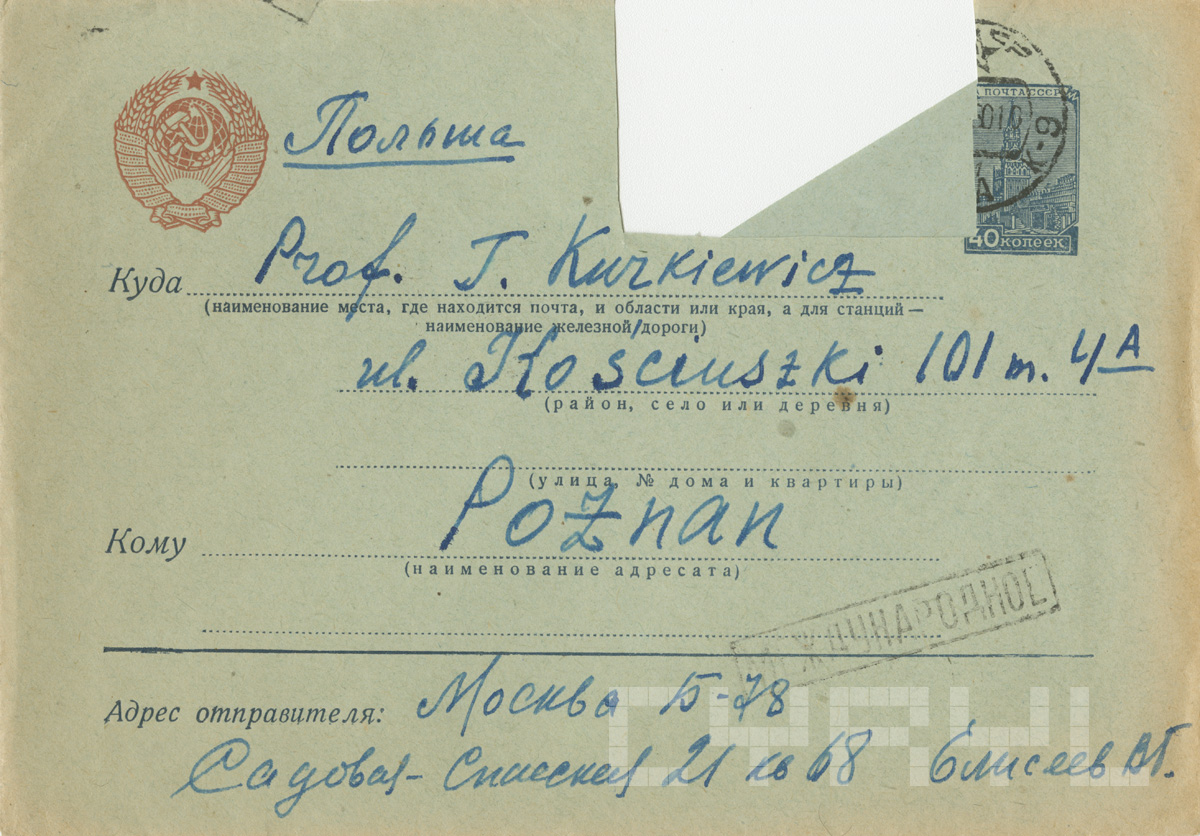 Польша
ПОЧТА СССР
К-9
40 КОПЕЕК
Prof. T. Kurkiewicz
Куда
(наименование места, где находится почта, и области или края, а для станций —
наименование железной дороги)
ul. Kościuszki 101 m. 4A
(район, село или деревня)
(улица, № дома и квартиры)
Poznan
Кому
(наименование адресата)
МЕЖДУНАРОДНОЕ
Адрес отправителя: Москва Б-78
Садовая-Спасская 21 кв 68 Елисеев В.Г.
CYRYL